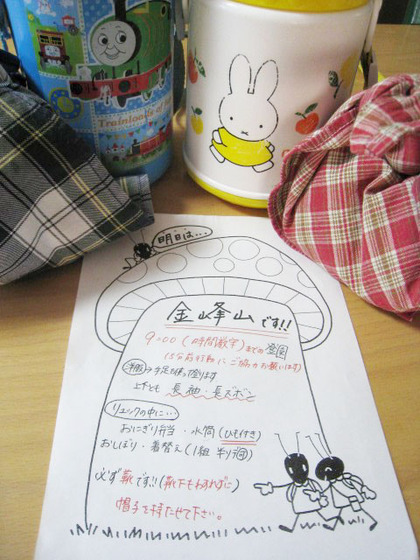 Trainloads of
明日は・・・
金峰山です!!
9:00(時間厳守)までの登園
(5分前行動にご協力お願いします)
洋服→手足を使って登ります
上下とも 長袖・長ズボン
リュックの中に・・・
おにぎり弁当・水筒(ひもつき)
おしぼり・着替え(1組
必ず靴です!!(靴下もわすれずに)
帽子を持たせて下さい。